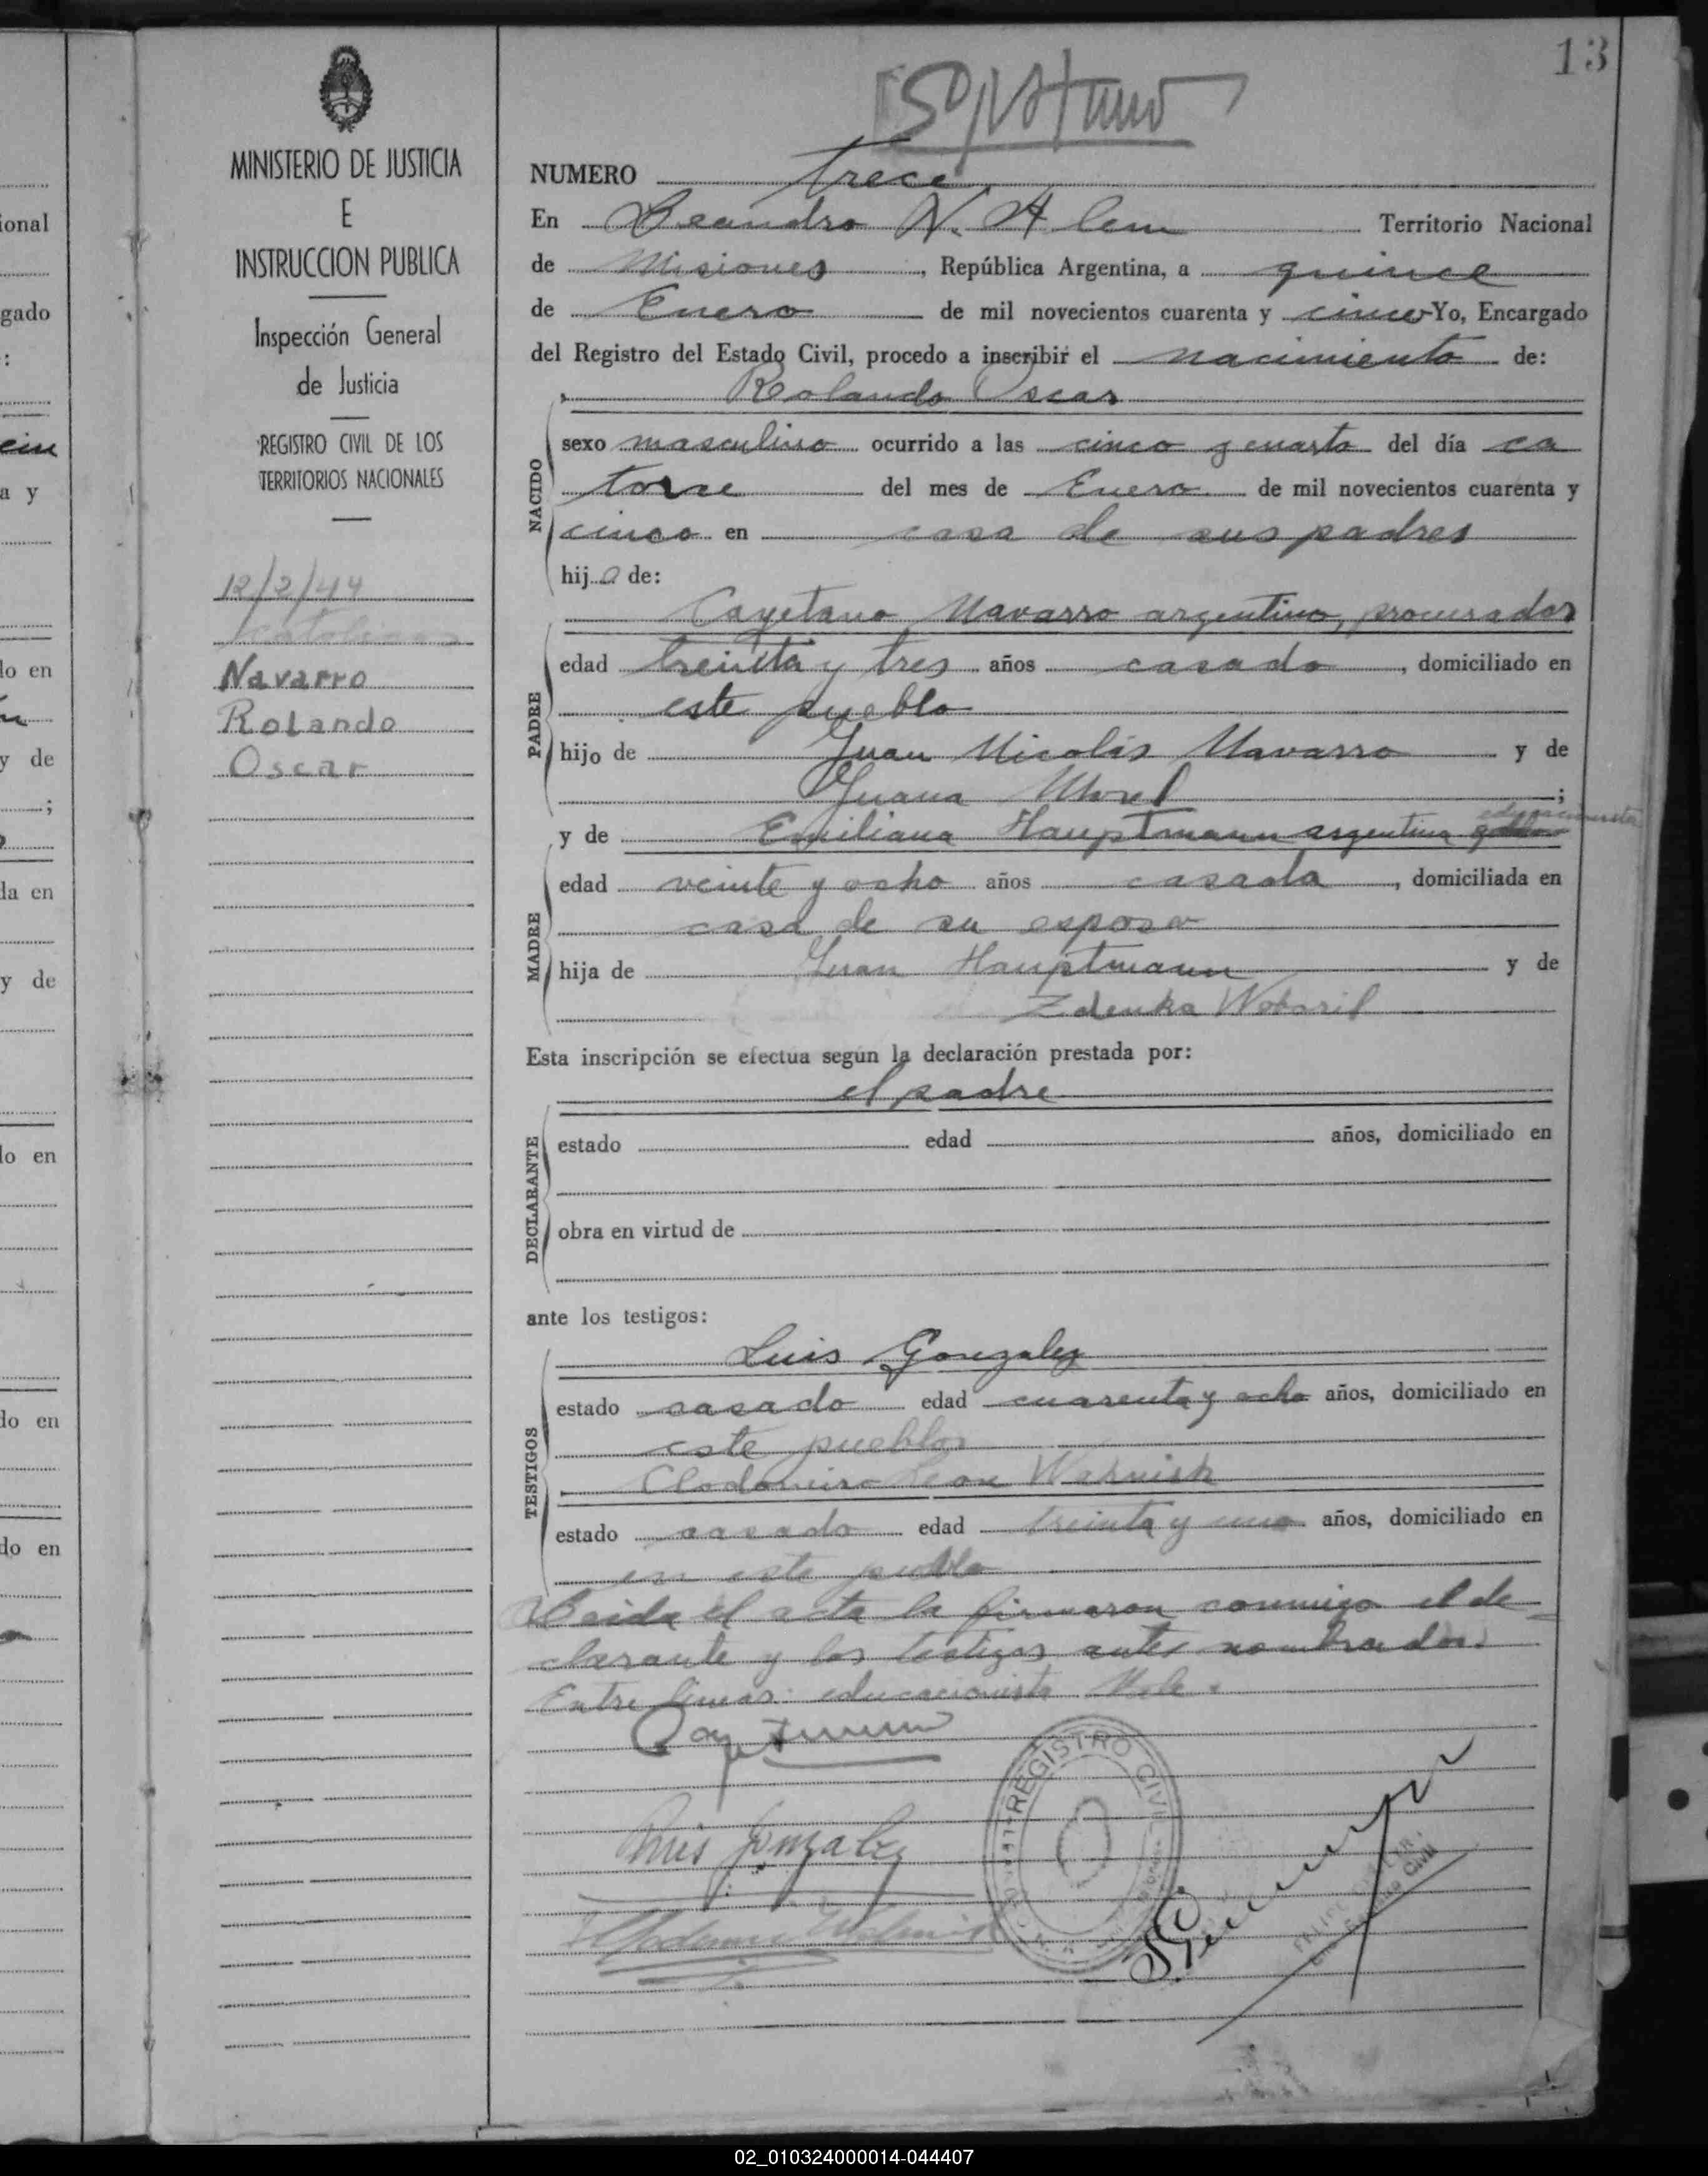 13
NUMERO trece
En Leandro N. Alem Territorio Nacional
de Misiones, República Argentina, a quince
de Enero de mil novecientos cuarenta y cinco Yo, Encargado
del Registro del Estado Civil, procedo a inscribir el nacimiento de:
Rolando Oscar
NACIDO
sexo masculino ocurrido a las cinco y cuarto del día ca
torce del mes de Enero de mil novecientos cuarenta y
cinco en casa de sus padres
hijo de:
Cayetano Navarro argentino, procurador
PADRE
edad treinta y tres años casado, domiciliado en
este pueblo
hijo de Juan Nicolás Navarro y de
Juana Morel;
educacionista
y de Emiliana Hauptmann argentina
MADRE
edad veinte y ocho años casada, domiciliada en
casa de su esposo
hija de Juan Hauptmann y de
Zdenka Woboril
Esta inscripción se efectua según la declaración prestada por:
el padre
DECLARANTE
estado edad años, domiciliado en
obra en virtud de
ante los testigos:
Luis Gonzalez
TESTIGOS
estado casado edad cuarenta y ocho años, domiciliado en
este pueblo
Clodomiro Leon Warnish
estado casado edad treinta y uno años, domiciliado en
en este pueblo
Leida el acta la firmaron conmigo el de
clarante y los testigos antes nombrados.
Entre lineas: educacionista Vale.
Luis Gonzalez
REGISTRO CIVIL
MINISTERIO DE JUSTICIA
E
INSTRUCCION PUBLICA
Inspección General
de Justicia
REGISTRO CIVIL DE LOS
TERRITORIOS NACIONALES
12/2/44
Navarro
Rolando
Oscar
ional
gado
:
ein
a y
lo en
y de
;
la en
y de
lo en
lo en
do en
02_010324000014-044407